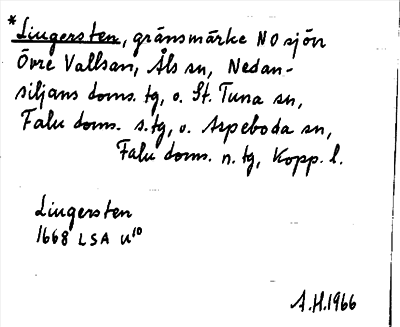 *Lingersten, gränsmärke NO sjön
Övre Vallsan, Åls sn, Nedan-
siljans doms. tg, o. St. Tuna sn,
Falu doms. s. tg, o. Aspeboda sn,
Falu doms. n. tg, Kopp. l.
Lingersten
1668 LSA U10
A.H.1966